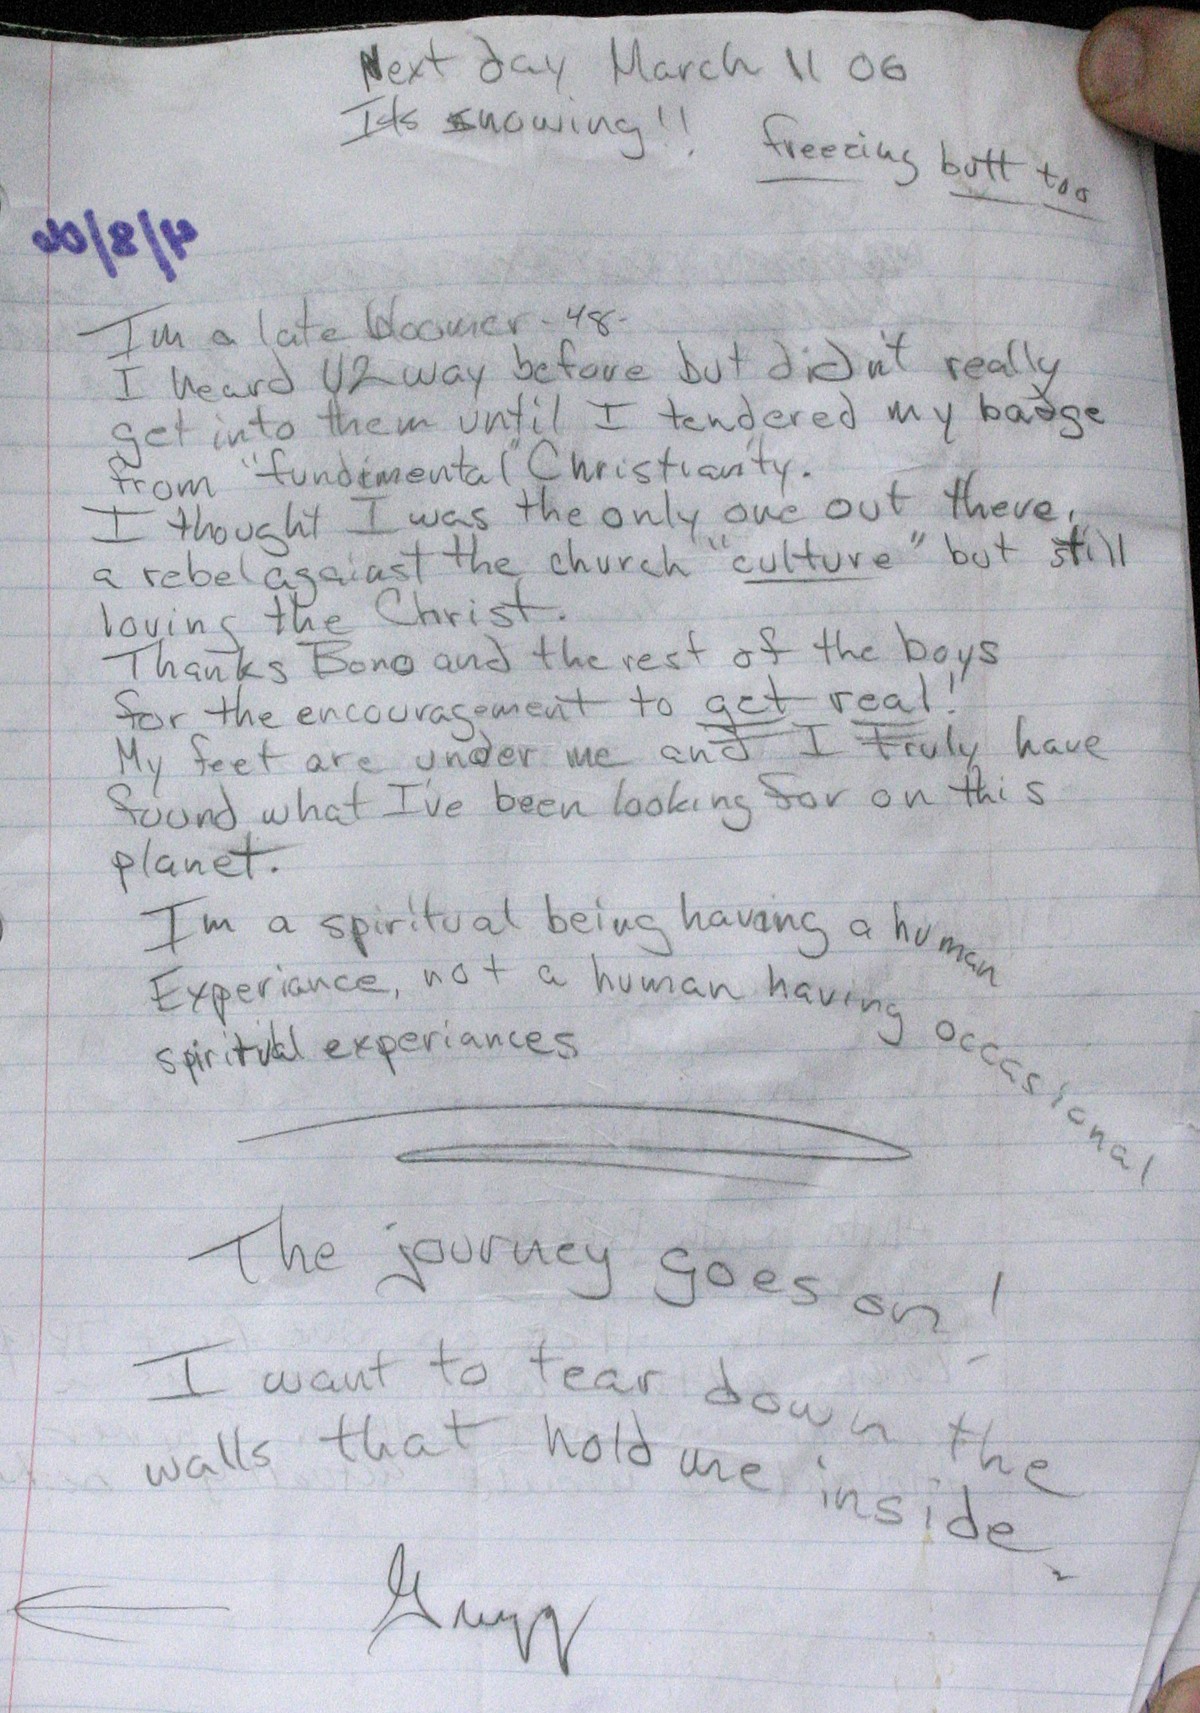 Next day March 11 06
Its snowing!!
freezing butt too
4/8/06
I'm a late bloomer -48-
I heard U2 way before but didn't really
get into them until I tendered my badge
from "fundimental" Christianity.
I thought I was the only one out there,
a rebel against the church "culture" but still
loving the Christ.
Thanks Bono and the rest of the boys
for the encouragement to get real!
My feet are under me and I truly have
found what I've been looking for on this
planet.
I'm a spiritual being having a human
Experiance, not a human having occasional
spiritual experiances
The journey goes on!
I want to tear down the
walls that hold me inside.
Gregg